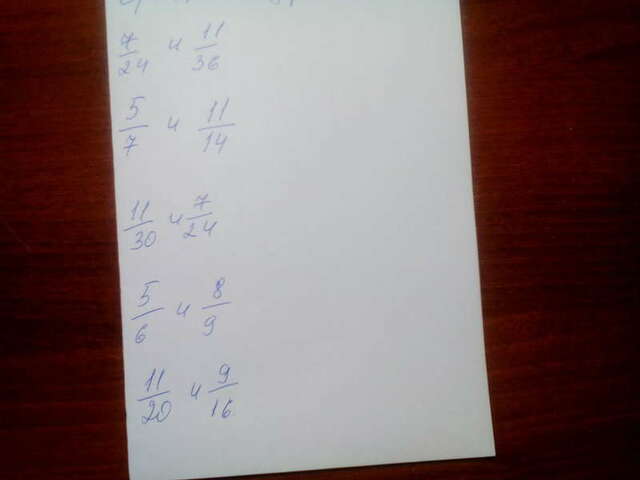 7/24 и 11/36
5/7 и 11/14
11/30 и 7/24
5/6 и 8/9
11/20 и 9/16